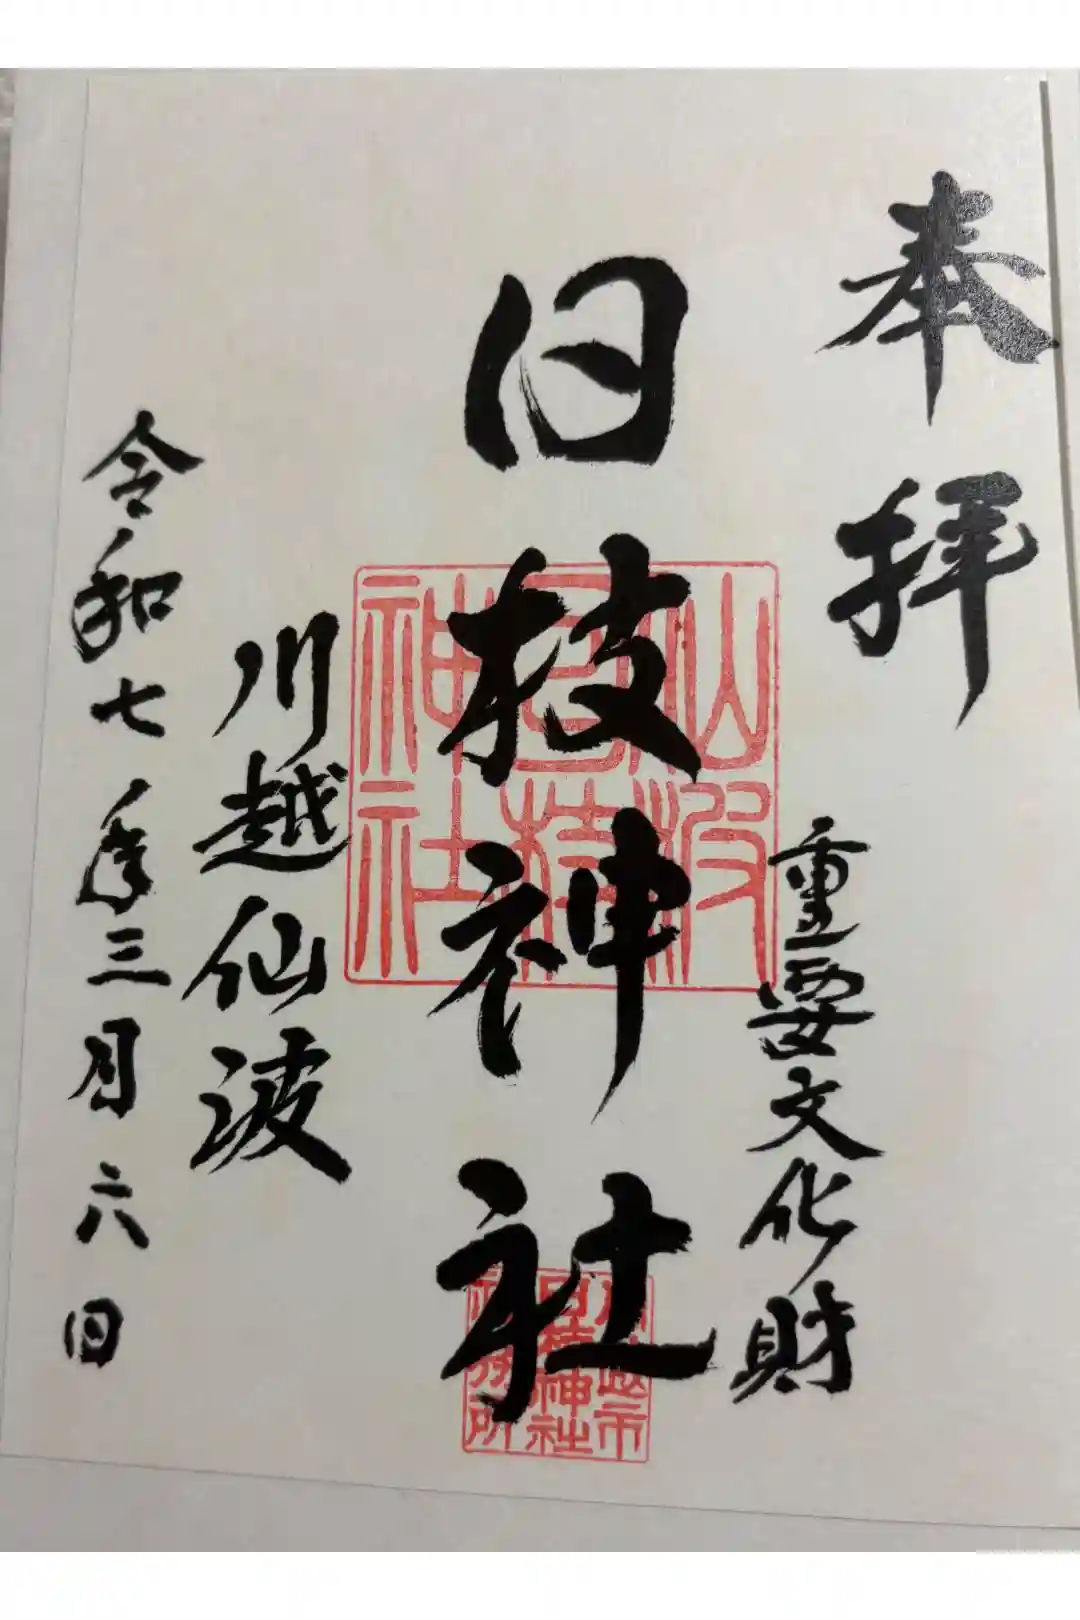 奉拝
重要文化財
日枝神社
川越仙波
令和七年三月六日
仙波
日枝
神社
川越市
日枝神社
社務所